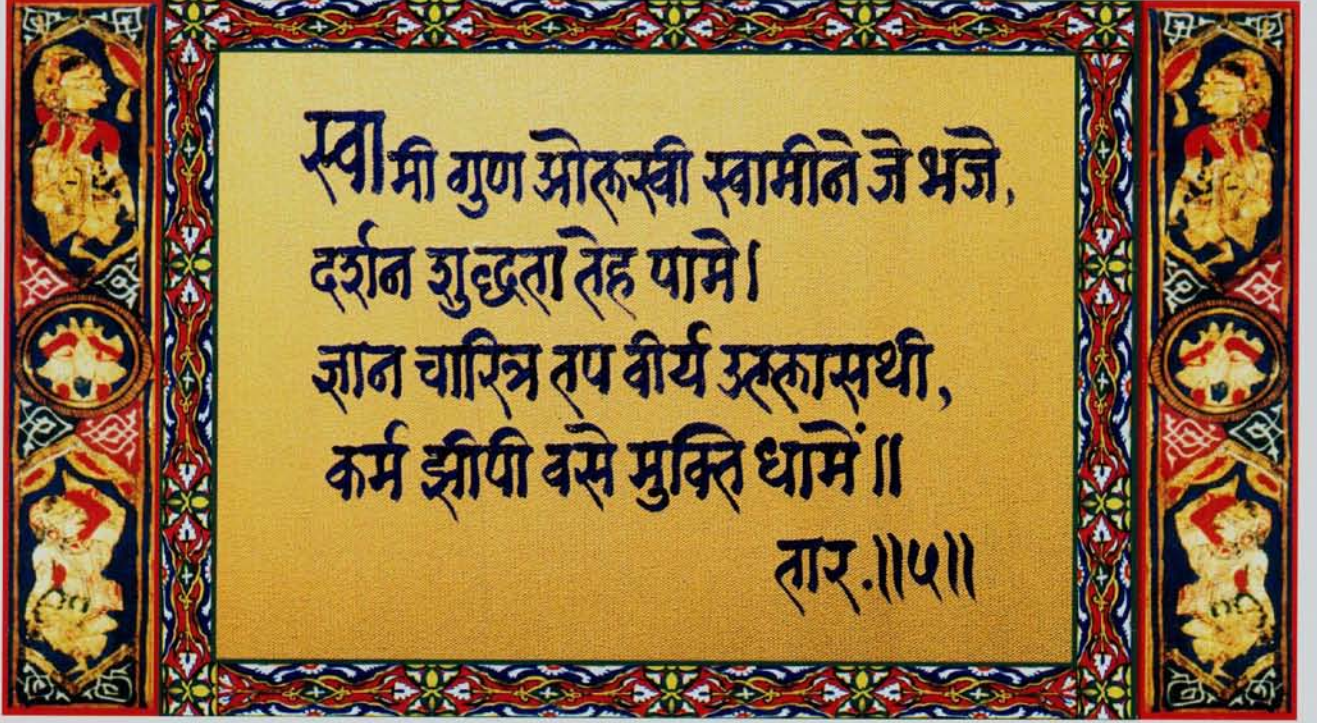 स्वामी गुण ओलखी स्वामीने जे भजे,
दर्शन शुद्धता तेह पामे।
ज्ञान चारित्र तप वीर्य उल्लासथी,
कर्म झीपी वसे मुक्ति धामें॥
तार.॥५॥